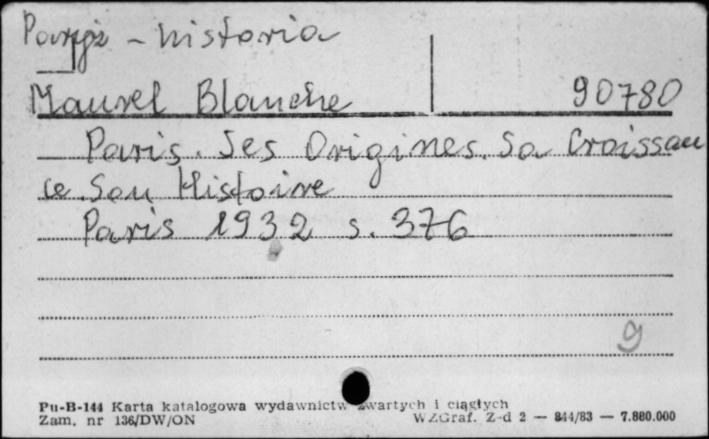 Paryż - historia
Maurel Blanche 90780
Paris. Ses Origines. Sa Croissan
ce. Son Histoire
Paris 1932 s. 376
9
Pu-B-144 Karta katalogowa wydawnictw zwartych i ciągłych
Zam. nr 136/DW/ON WZGraf. Z-d 2 — 844/83 — 7.880.000